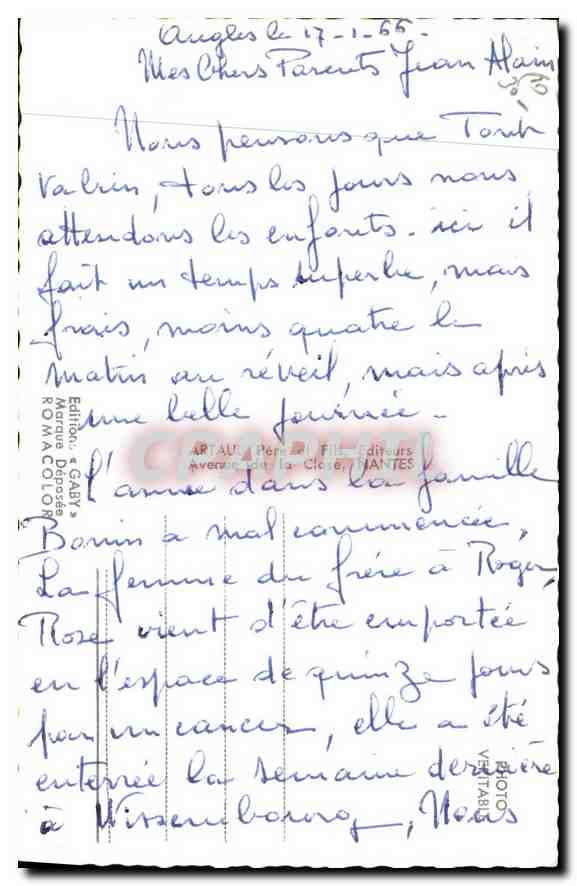 Angles le 17-1-66-
Mes Chers Parents Jean Alain
Nous pensons que Tout
va bien, tous les jours nous
attendons les enfants. ici il
fait un temps superbe, mais
frais, moins quatre le
matin au réveil, mais après
une belle journée.
L'année dans la famille
Bonin a mal commencée,
La femme du frère à Roger,
Rose vient d'être emportée
en l'espace de quinze jours
par un cancer, elle a été
enterrée la semaine dernière
à Wissembourg, Nous
ARTAUD Père et Fils, Editeurs
Avenue de la Close, NANTES
Edition « GABY »
Marque Déposée
ROMACOLOR
PHOTO
VERITABLE
CPAPHIL